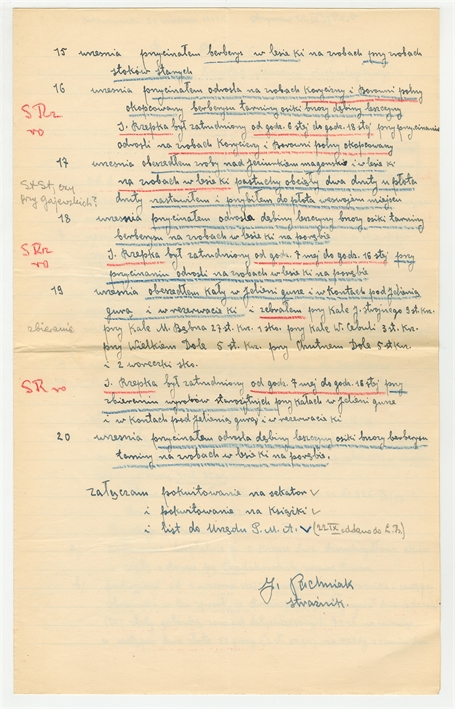 15 wresnia przycinałem berberys w lesie ki na zrobach przy zrobach
stoków starych
16 wresnia przycinałem odrosla na zrobach Koryciny i Borowni polny
okopcowany berberysu tarniny osik brozy dębiny leszczyny
SRz
ro
J. Rzepka był zatrudniony od godz. 6 stej do godz. 18 stej przy przycinaniu
odrosli na zrobach Korycicny i Borowni polny okopcowany
17 wresnia obszedłem zroby nad i w lesie ki
na zrobach w lesie ki pastuchy obcięli dwa druty u płota
druty nastawiłem i przybiłem do płota wswojem miejscu
przy gajewskich?
18 wresnia przycinałem odrosla dębiny brozyny brozy osik tarniny
berberysu na zrobach w lesie ki na porębie
SRz
ro
J. Rzepka był zatrudniony od godz. 7 mej do godz. 16 stej przy
przycinaniu odrosli na zrobach w lesie ki na porębie
19 wresnia obszedłem kały w Jeleni gurze i w Kontach pod Jelenią
gurą i w rezerwacie ki i zebrałem przy Kale J. 9 st. kr.
zbieranie
przy Kale M. Bąbna 27 st. kr. 1 sko. przy kale W. Cebuli 3 st. kr.
przy Wielkiem Dole 5 st. kr. przy Dole 5 st kr.
i 2 woreczki sko.
SR ro
J. Rzepka był zatrudniony od godz. 7 mej do godz. 16 stej przy
zbieraniu wyrobów starożytnych przy Kałach w Jeleni gurze
i w Kontach pod Jelenią gurą i w rezerwacie ki
20 wresnia przycinałem odrosla dębiny leszczyny osik brozy berberysu
tarniny na zrobach w lesie ki na porębie.
załączam pokwitowanie na sekator
i pokwitowanie na Książki
i list do Urzędu P. M. A. (22 IX oddano do Ł. Tz)
J. Pachniak
strażnik.